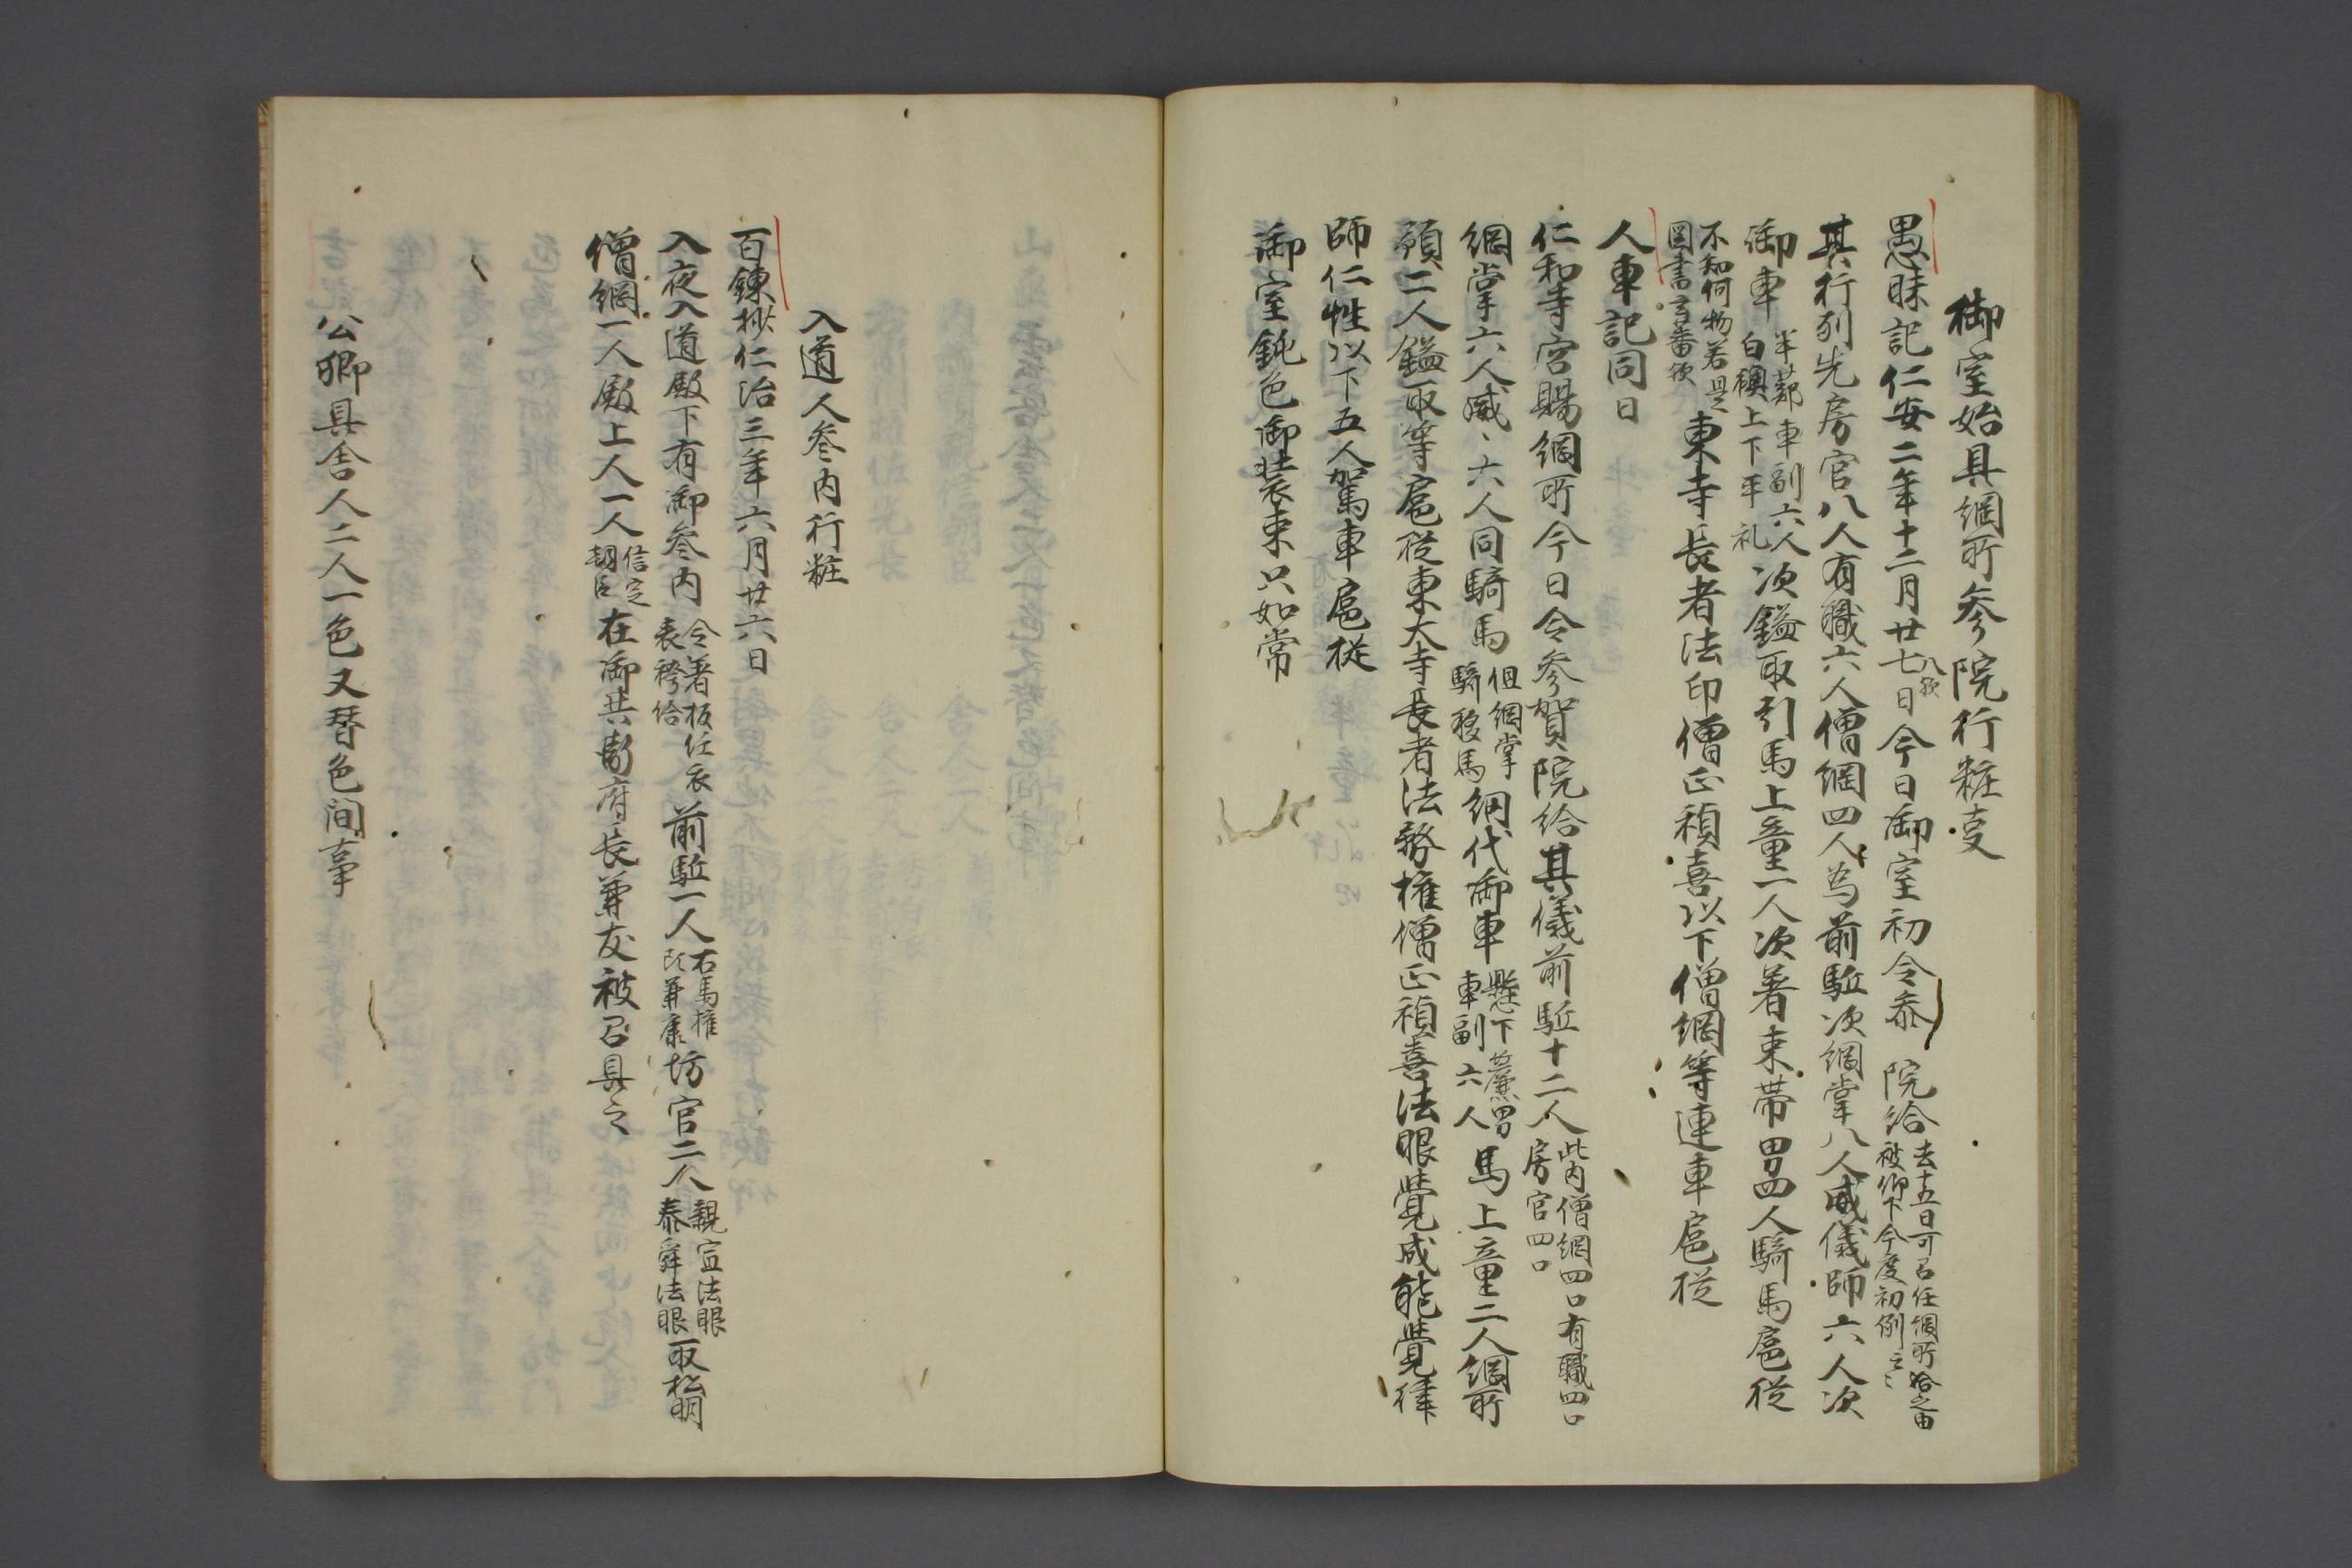 御室始具綱所参院行粧事
愚昧記仁安二年十二月廿七日八歟今日御室初令参　院給去十五日可召任綱所給之由被仰下今度初例云々
其行列先房官八人有職六人僧綱四人為前駈次綱掌八人威儀師六人次
御車半蔀車副六人白襖上下平礼次鎰取引馬上童一人次著束帯男四人騎馬扈従
不知何物若是図書官番頭東寺長者法印僧正禎喜以下僧綱等連車扈従
人車記同日
仁和寺宮賜綱所今日令参賀院給其儀前駈十二人此内僧綱四口有職四口房官四口
綱掌六人威ヽ六人同騎馬但綱掌騎移馬網代御車懸下簾男車副六人馬上童二人綱所
預二人鎰取等扈従東大寺長者法務権僧正禎喜法眼覚成能覚律
師仁性以下五人駕車扈従
御室鈍色御装束只如常
入道人参内行粧
百錬抄仁治三年六月廿六日
入夜入道殿下有御参内令著板任衣表袴給前駈一人右馬権頭兼康坊官二人親宣法眼泰舜法眼取松明
僧綱一人殿上人一人信定朝臣在御共衛府長兼友被召具之
公卿具舎人二人一色又替色間事